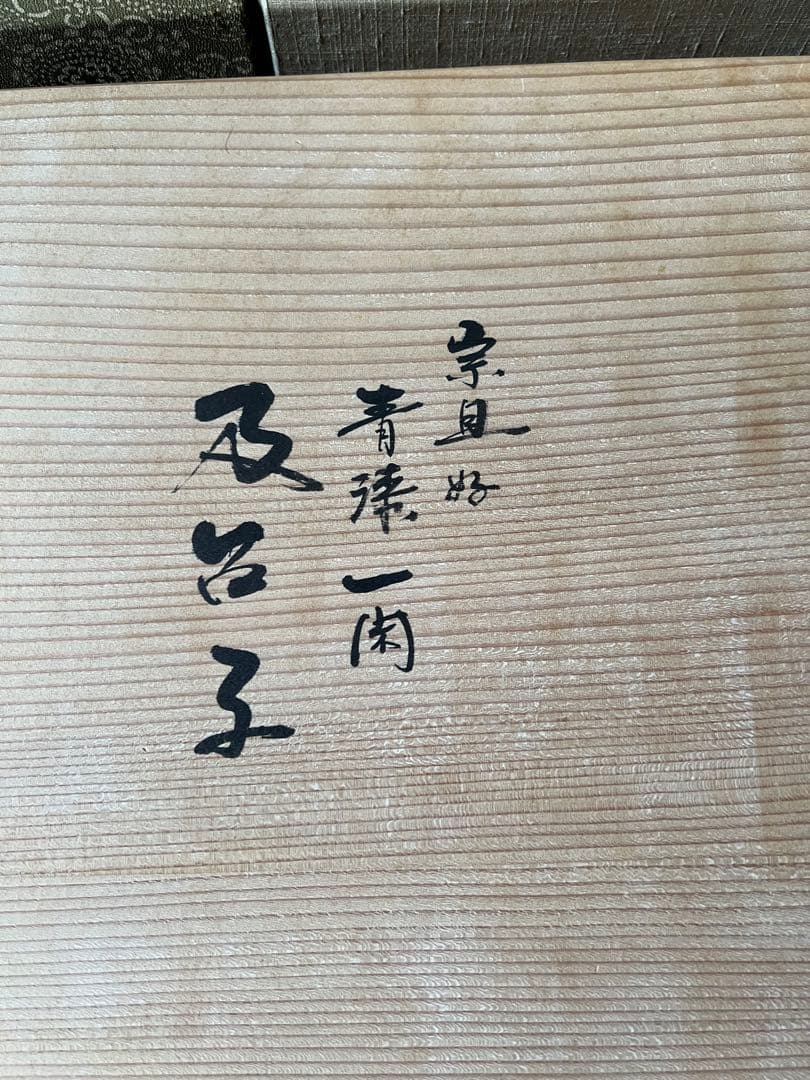 宗旦好
青漆一閑
及台子